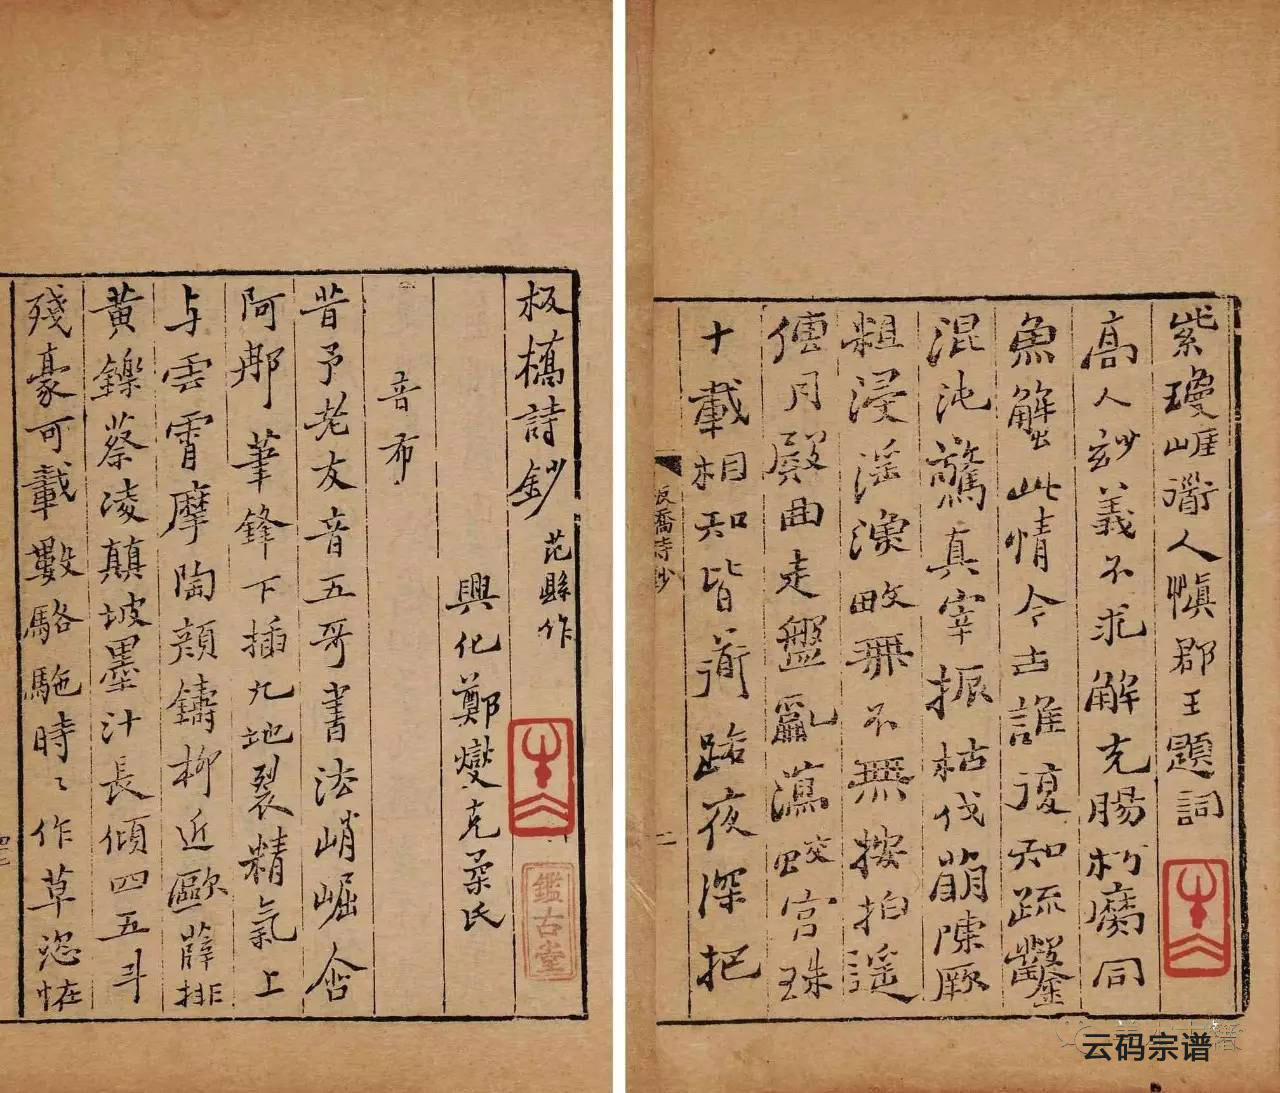 紫瓊崕衟人慎郡王題詞
高人玅義不求解充腸朽腐同
魚蟹此情今古誰復知疏鑿
混沌驚真宰振枯伐萌陳厥
粗浸淫漁畋無不無按拍遥
傳月殿曲走盤亂瀉蛟宮珠
十載相知皆衟路夜深把
板橋詩鈔
一
板橋詩鈔 范縣作
興化鄭燮克柔氏
鑑古堂
音布
昔予老友音五哥書法峭崛含
阿那筆鋒下插九地裂精氣上
与雲霄摩陶顏鑄柳近歐薛排
黃鑠蔡凌顛坡墨汁長傾四五斗
殘豪可載數駱駞時〻作草恣怪
云码宗谱